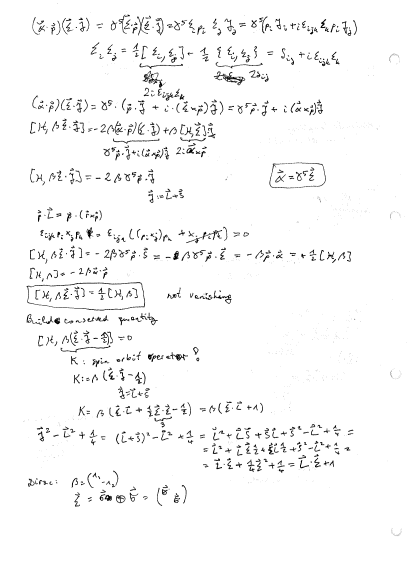 (α⃗·p⃗)(Σ⃗·J⃗) = γ⁵(Σ⃗·p⃗)(Σ⃗·J⃗) = γ⁵ Σᵢ pᵢ Σⱼ Jⱼ = γ⁵(pᵢ Jᵢ + i εᵢⱼₖ Σₖ pᵢ Jⱼ)
Σᵢ Σⱼ = ½[Σᵢ, Σⱼ] + ½{Σᵢ, Σⱼ} = δᵢⱼ + i εᵢⱼₖ Σₖ
2δᵢⱼ
2i εᵢⱼₖ Σₖ
(α⃗·p⃗)(Σ⃗·J⃗) = γ⁵·(p⃗·J⃗ + i·(Σ⃗×p⃗)J⃗) = γ⁵ p⃗·J⃗ + i(α⃗×p⃗)J⃗
[H, βΣ⃗·J⃗] = -2β(α⃗·p⃗)(Σ⃗·J⃗) + β[H, Σ⃗]J⃗
γ⁵p⃗·J⃗ + i(α⃗×p⃗)J⃗ 2i α⃗×p⃗
[H, βΣ⃗·J⃗] = -2βγ⁵ p⃗·J⃗ α⃗ = γ⁵Σ⃗
J⃗ = L⃗ + S⃗
p⃗·L⃗ = p·(r⃗×p⃗)
εᵢⱼₖ pᵢ xⱼ pₖ = εᵢⱼₖ((pᵢ xⱼ)pₖ + xⱼ pᵢ pₖ) = 0
[H, βΣ⃗·J⃗] = -2βγ⁵p⃗·S⃗ = -βγ⁵p⃗·Σ⃗ = -βp⃗·α⃗ = +½[H, β]
[H, β] = -2βα⃗·p⃗
[H, βΣ⃗·J⃗] = ½[H, β] not vanishing
Build conserved quantity
[H, β(Σ⃗·J⃗ - ½)] = 0
K: spin orbit operator!
K := β(Σ⃗·J⃗ - ½)
J⃗ = L⃗ + S⃗
K = β(Σ⃗·L⃗ + ½Σ⃗·Σ⃗ - ½) = β(Σ⃗·L⃗ + 1)
3
J⃗² - L⃗² + ¼ = (L⃗+S⃗)² - L⃗² + ¼ = L⃗² + L⃗S⃗ + S⃗L⃗ + S⃗² - L⃗² + ¼ =
= L⃗² + L⃗Σ⃗½ + ½Σ⃗L⃗ + S⃗² - L⃗² + ¼ =
= L⃗·Σ⃗ + ¼Σ⃗² + ¼ = L⃗·Σ⃗ + 1
Dirac: β = (1₂ -1₂)
Σ⃗ = σ⃗ ⊕ σ⃗ = (σ⃗ σ⃗)